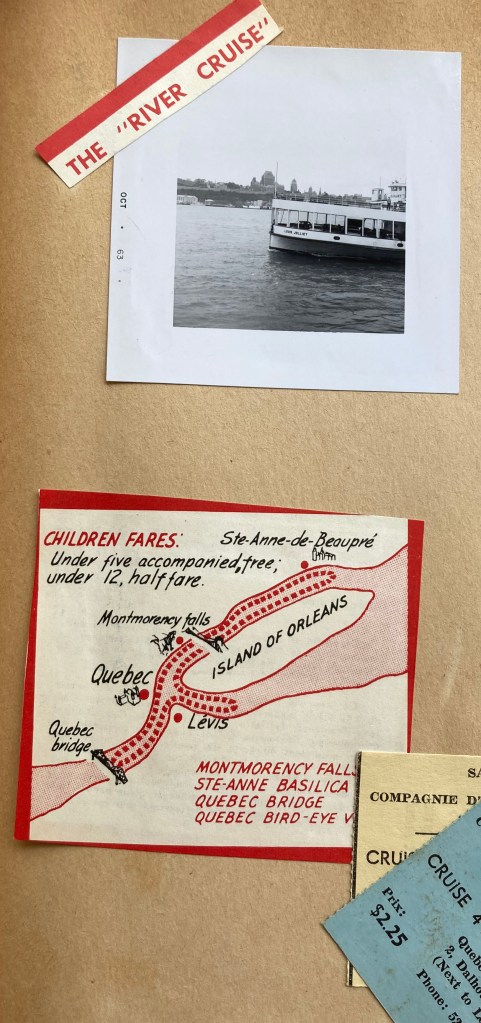 THE "RIVER CRUISE"
OCT • 63 •
LOUIS JOLLIET
CHILDREN FARES:
Under five accompanied, free;
under 12, half fare.
Ste-Anne-de-Beaupré
Montmorency falls
ISLAND OF ORLEANS
Quebec
Lévis
Quebec
bridge
MONTMORENCY FALLS
STE-ANNE BASILICA
QUEBEC BRIDGE
QUEBEC BIRD-EYE V
SA
COMPAGNIE D'
CRUIS
CRUISE 4
Prix:
$2.25
Quebe
2, Dalhou
(Next to L
Phone: 52